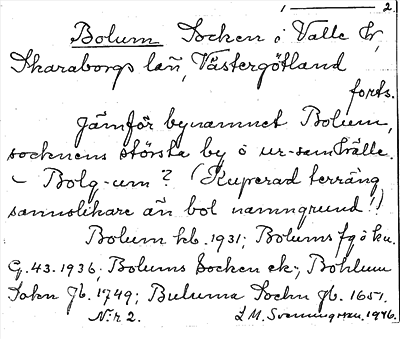 1 — 2.
Bolum Socken i Valle Hr,
Skaraborgs län, Västergötland
forts.
Jämför bynamnet Bolum,
socknens största by o ur-samhälle.
– Bolg-um? (Kuperad terräng
sannolikare än bol namngrund!)
Bolum kb. 1931; Bolums fg ö ku.
G. 43. 1936; Bolums Socken ek.; Bohlum
Sokn Jb. 1749; Buluma Sochn Jb. 1651.
N:r 2. L M. Svenningson. 1946.